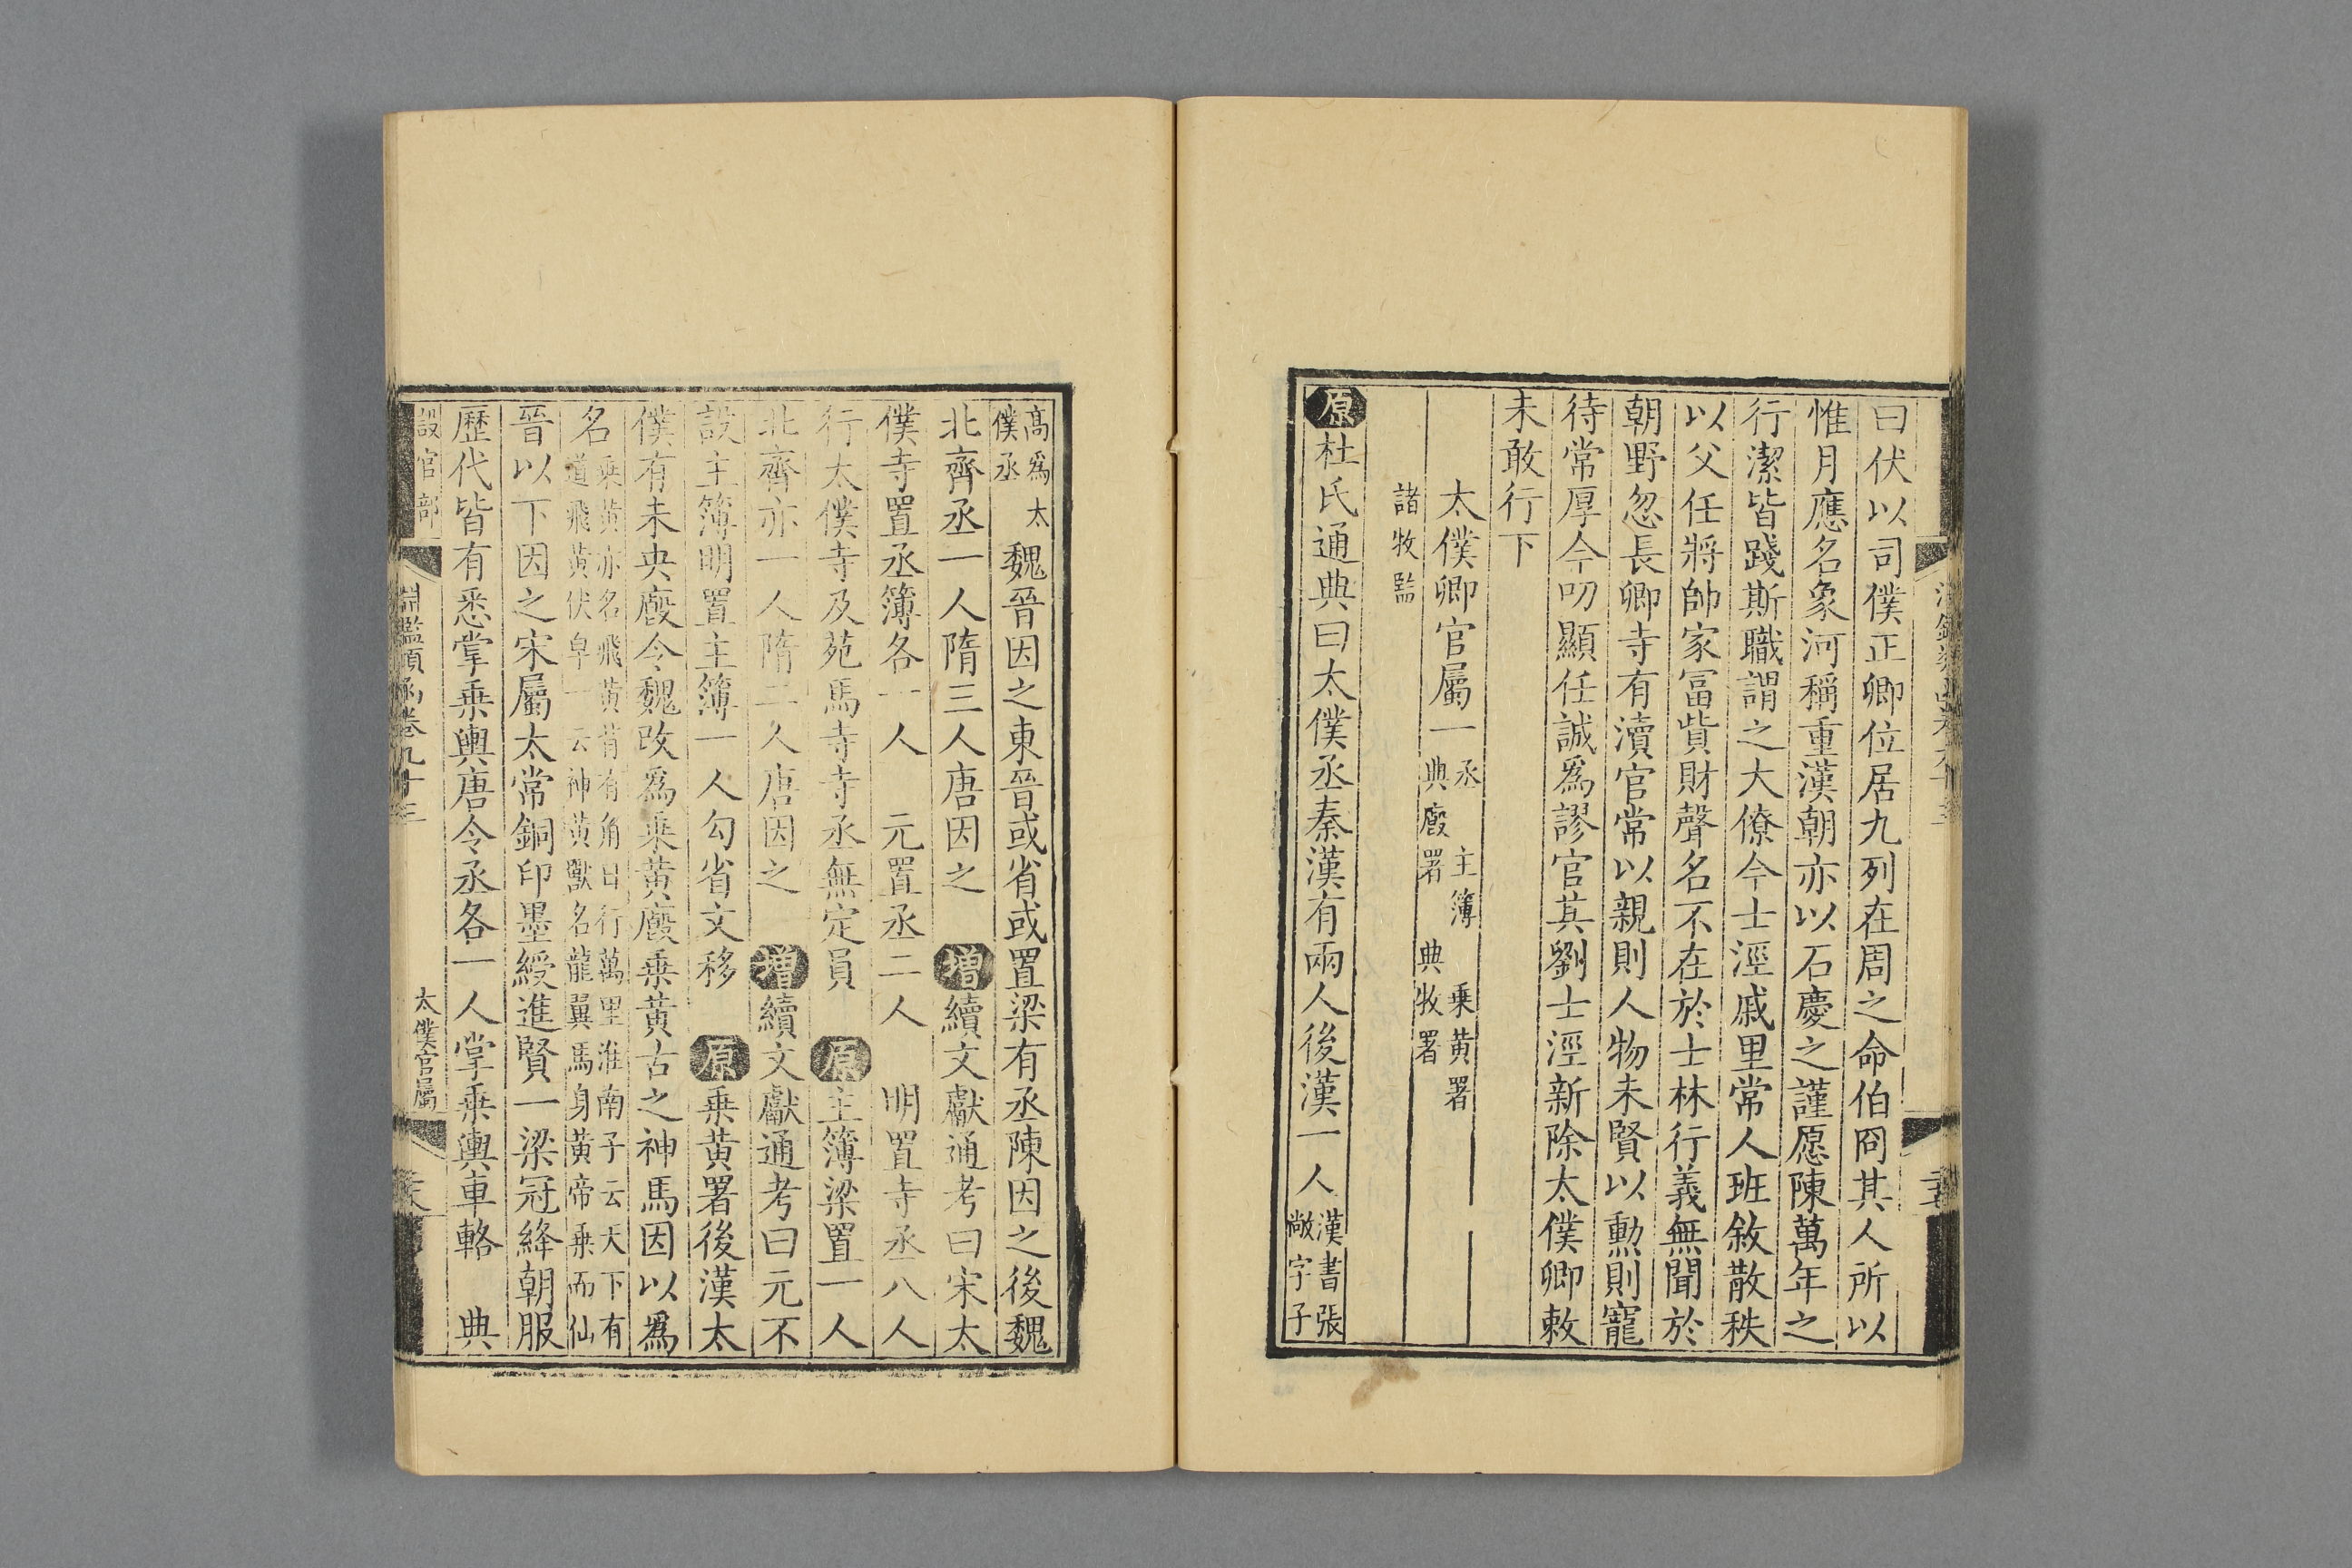 曰伏以司僕正卿位居九列在周之命伯冏其人所以
惟月應名象河稱重漢朝亦以石慶之謹愿陳萬年之
行潔皆踐斯職謂之大僚今士涇戚里常人班敘散秩
以父任將帥家冨貲財聲名不在於士林行義無聞於
朝野忽長卿寺有瀆官常以親則人物未賢以勲則寵
待常厚今叨顯任誠爲謬官其劉士涇新除太僕卿敕
未敢行下
太僕卿官屬一丞 主簿 乗黄署
典廏署 典牧署
諸牧監
原杜氏通典曰太僕丞秦漢有兩人後漢一人漢書張
敞字子
高爲太
僕丞
魏晉因之東晉或省或置梁有丞陳因之後魏
北齊丞一人隋三人唐因之 增續文獻通考曰宋太
僕寺置丞簿各一人 元置丞二人 明置寺丞八人
行太僕寺及苑馬寺寺丞無定員 原主簿梁置一人
北齊亦一人隋二人唐因之 增續文獻通考曰元不
設主簿明置主簿一人勾省文移 原乗黄署後漢太
僕有未央廏令魏改爲乗黄廏乗黄古之神馬因以爲
名乗黄亦名飛黄背有角日行萬里淮南子云天下有
道飛黄伏皁一云神黄獸名龍翼馬身黄帝乗而仙
晉以下因之宋屬太常銅印墨綬進賢一梁冠絳朝服
歷代皆有悉掌乗輿唐令丞各一人掌乗輿車輅 典
設官部
淵鑑類函卷九十三
太僕官屬